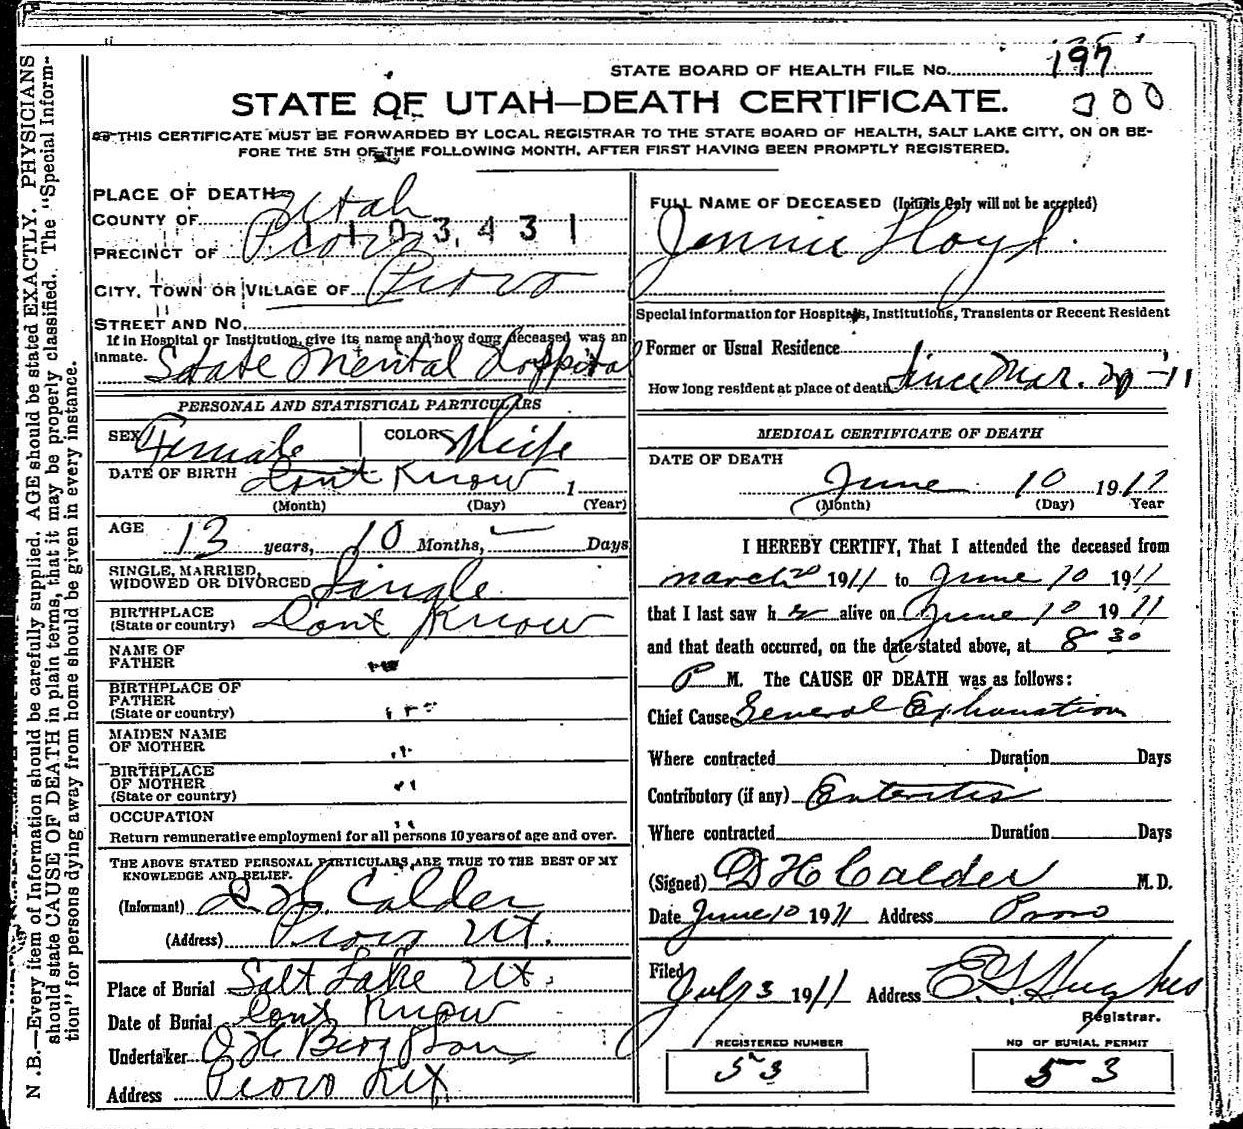 STATE BOARD OF HEALTH FILE No. 197
STATE OF UTAH—DEATH CERTIFICATE. 200
THIS CERTIFICATE MUST BE FORWARDED BY LOCAL REGISTRAR TO THE STATE BOARD OF HEALTH, SALT LAKE CITY, ON OR BE-
FORE THE 5TH OF THE FOLLOWING MONTH, AFTER FIRST HAVING BEEN PROMPTLY REGISTERED.
N.B.—Every item of information should be carefully supplied. AGE should be stated EXACTLY. PHYSICIANS
should state CAUSE OF DEATH in plain terms, that it may be properly classified. The "Special Inform-
tion" for persons dying away from home should be given in every instance.
PLACE OF DEATH
COUNTY OF Utah
1103,431
PRECINCT OF Provo
CITY, TOWN OR VILLAGE OF Provo
STREET AND No.
If in Hospital or Institution, give its name and how long deceased was an
inmate. State Mental Hospital
PERSONAL AND STATISTICAL PARTICULARS
SEX Female COLOR White
DATE OF BIRTH Dont Know 1
(Month) (Day) (Year)
AGE 13 years, 10 Months, — Days
SINGLE, MARRIED,
WIDOWED OR DIVORCED Single
BIRTHPLACE
(State or country) Dont Know
NAME OF
FATHER "
BIRTHPLACE OF
FATHER
(State or country) "
MAIDEN NAME
OF MOTHER "
BIRTHPLACE
OF MOTHER
(State or country) "
OCCUPATION "
Return remunerative employment for all persons 10 years of age and over.
THE ABOVE STATED PERSONAL PARTICULARS ARE TRUE TO THE BEST OF MY
KNOWLEDGE AND BELIEF.
(Informant) D. H. Calder
(Address) Provo Ut.
Place of Burial Salt Lake Ut.
Date of Burial Dont Know
Undertaker O H Berg & Son
Address Provo Ut
FULL NAME OF DECEASED (Initials Only will not be accepted)
Jennie Lloyd.
Special information for Hospitals, Institutions, Transients or Recent Resident
Former or Usual Residence
How long resident at place of death Since Mar. 20-'11
MEDICAL CERTIFICATE OF DEATH
DATE OF DEATH
June 10 1911
(Month) (Day) Year
I HEREBY CERTIFY, That I attended the deceased from
March 20 1911 to June 10 1911
that I last saw her alive on June 10 1911
and that death occurred, on the date stated above, at 8 30
P M. The CAUSE OF DEATH was as follows:
Chief Cause General Exhaustion
Where contracted Duration Days
Contributory (if any) Enteritis
Where contracted Duration Days
(Signed) D H Calder M.D.
Date June 10 1911 Address Provo
Filed July 3 1911 Address E. G. Hughes
Registrar.
REGISTERED NUMBER
53
NO OF BURIAL PERMIT
53